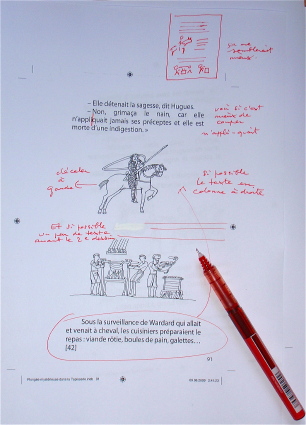 ça me
semblerait
mieux
– Elle détenait la sagesse, dit Hugues.
– Voui, grimaça le nain, car elle
n'appliquait jamais ses préceptes et elle est
morte d'une indigestion. »
voir si c'est
mieux de
couper
n'appli-quait
décaler
à
gauche
Si possible
le texte en
colonne à droite
Et si possible
un peu de texte
avant le 2e dessin
Sous la surveillance de Wardard qui allait
et venait à cheval, les cuisiniers préparaient le
repas : viande rôtie, boules de pain, galettes…
(42)
91